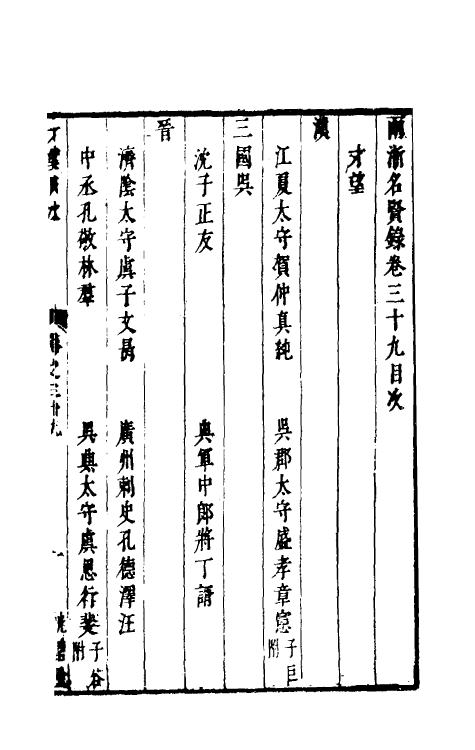 兩浙名賢錄卷三十九目次
才望
漢
江夏太守賀仲真純
吳郡太守盛孝章憲子巨附
三國吳
沈子正友
典軍中郎將丁諝
晉
濟陰太守虞子文昺
廣州刺史孔德澤汪
中丞孔敬林羣
吳興太守虞思行斐子谷附
才望目次
卷之三十九
一